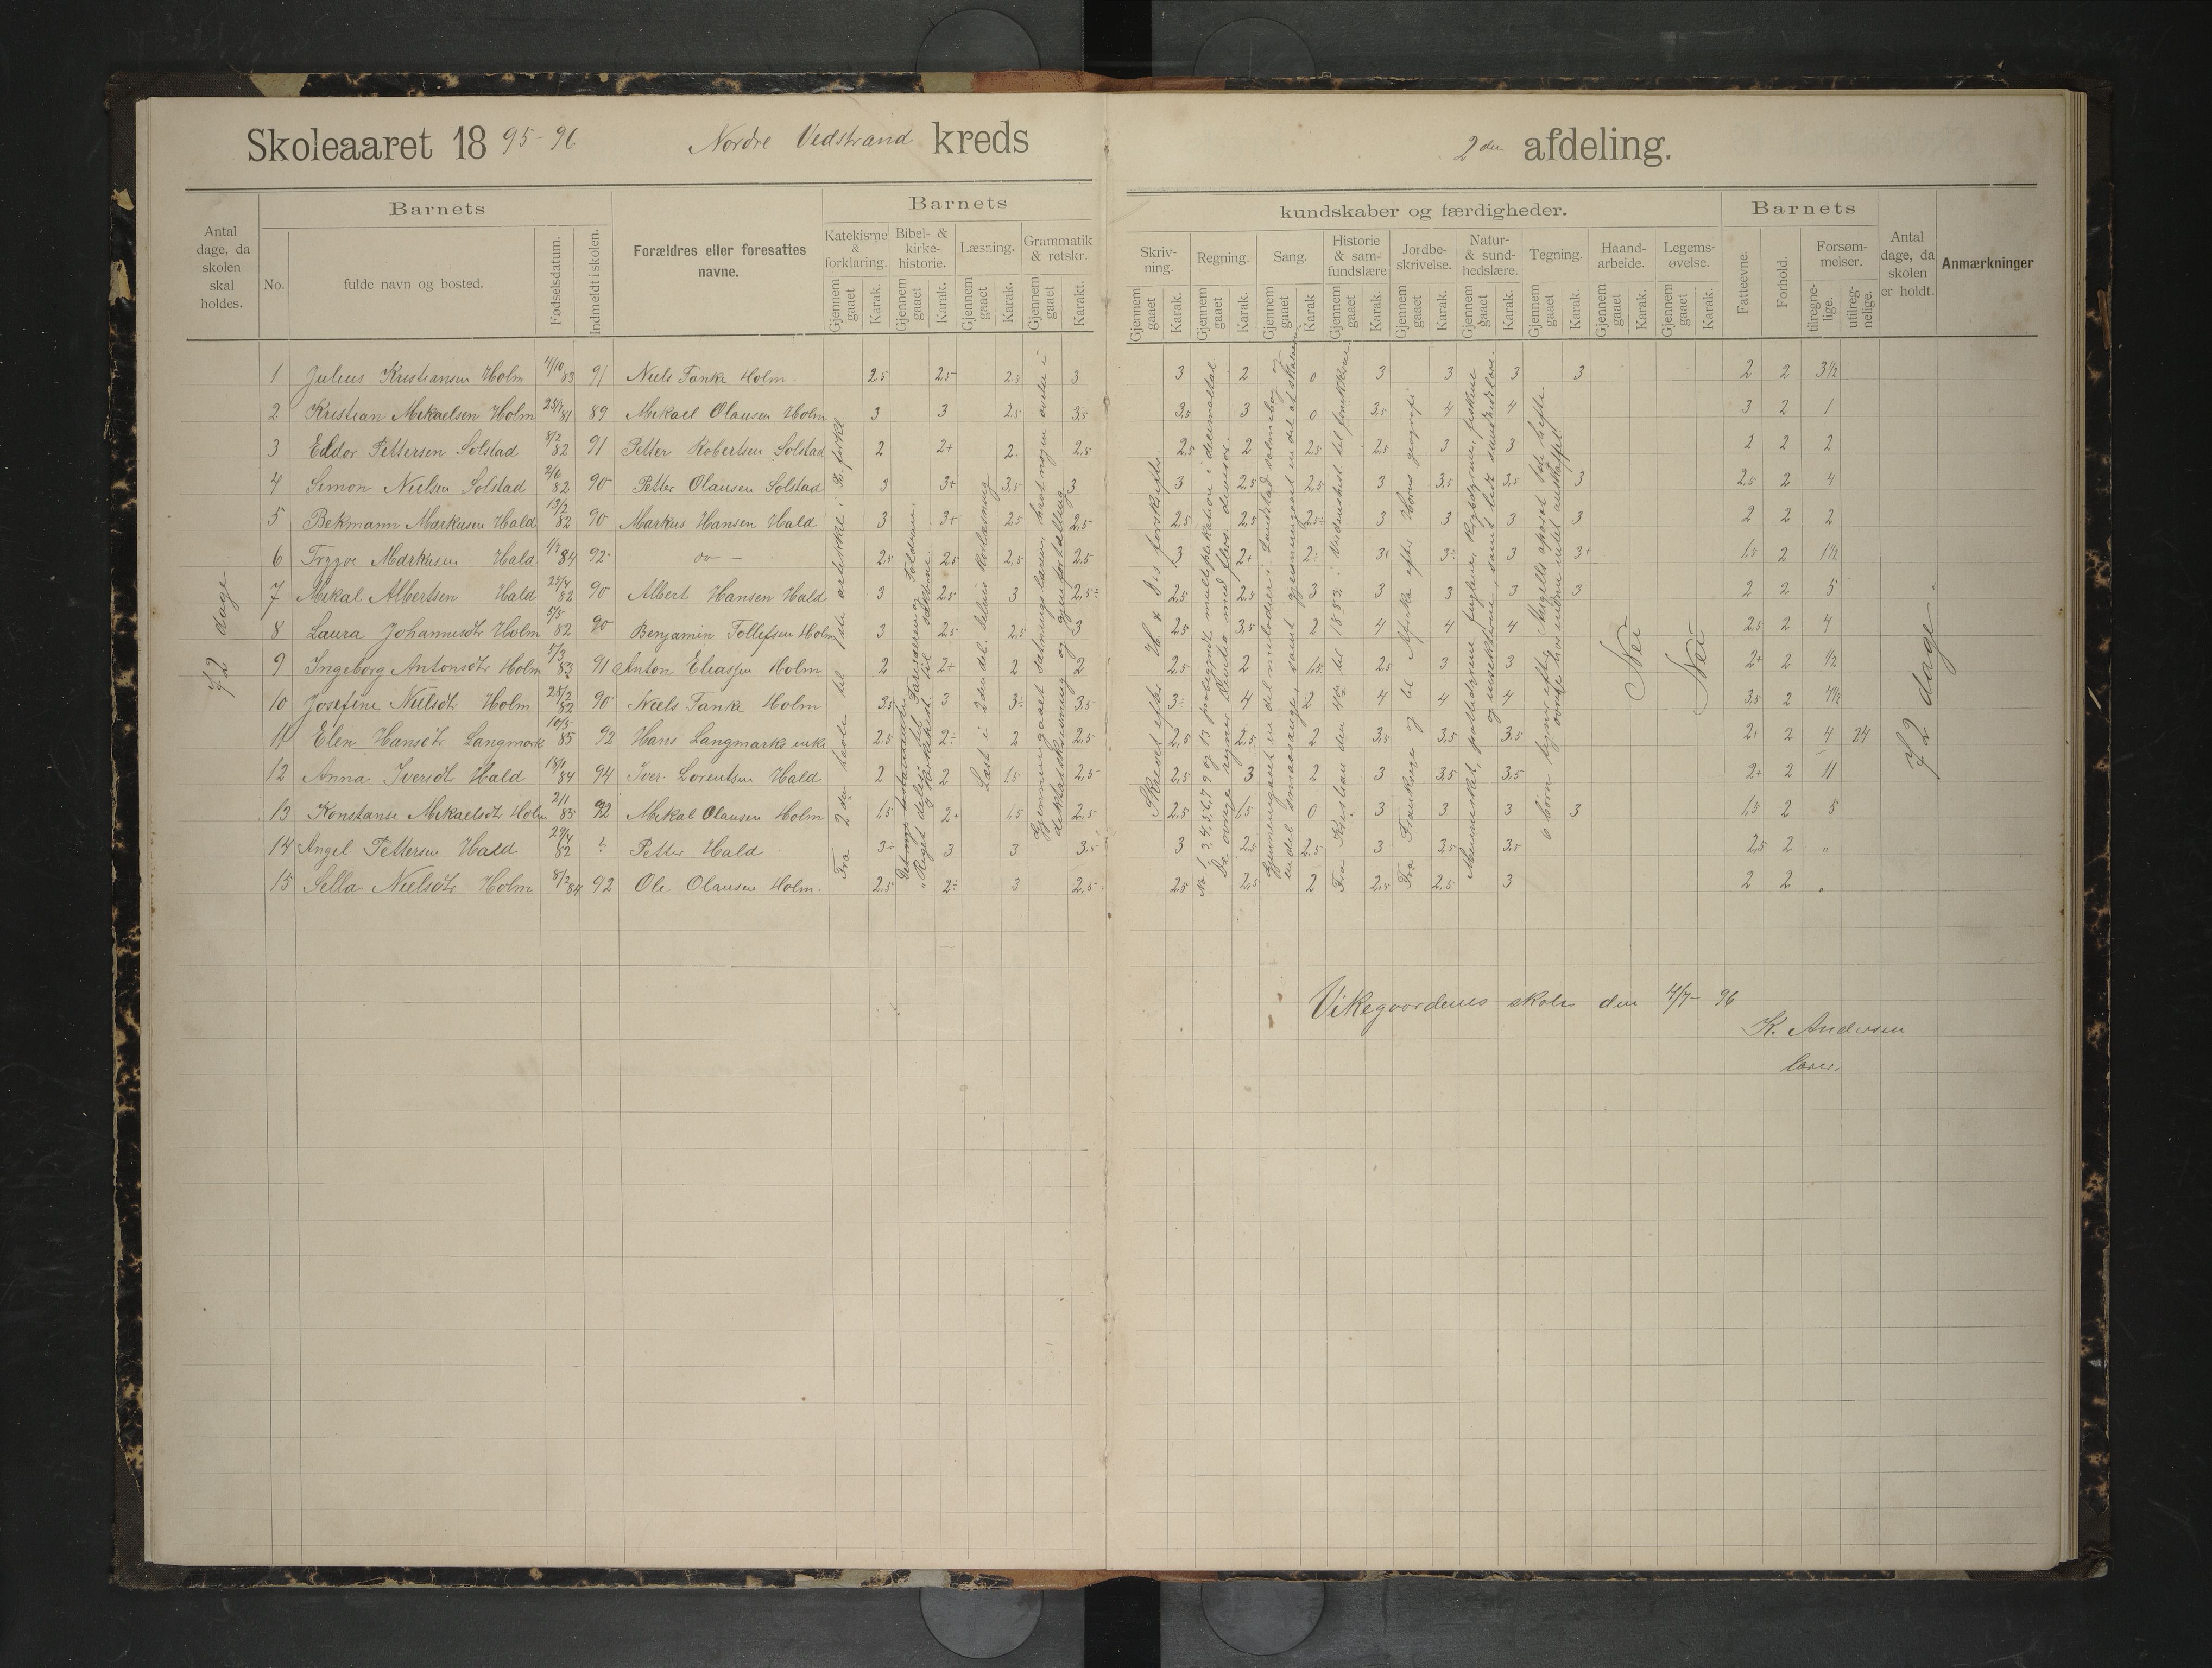 Skoleaaret 1895-96 Nordre Vedstrand kreds 2den afdeling.
Antal dage, da skolen skal holdes. Barnets Forældres eller foresattes navne. Barnets kundskaber og færdigheder. Barnets Antal dage, da skolen er holdt. Anmærkninger
No. fulde navn og bosted. Fødselsdatum. Indmeldt i skolen. Katekisme & forklaring. Bibel- & kirke-historie. Læsning. Grammatik & retskr. Skriv-ning. Regning. Sang. Historie & sam-fundslære Jordbe-skrivelse. Natur- & sund-hedslære. Tegning. Haand-arbeide. Legems-øvelse. Fatteevne. Forhold. Forsøm-melser.
Gjennem gaaet Karak. Gjennem gaaet Karak. Gjennem gaaet Karak. Gjennem gaaet Karakt. Gjennem gaaet Karak. Gjennem gaaet Karak. Gjennem gaaet Karak Gjennem gaaet Karak. Gjennem gaaet Karak. Gjennem gaaet Karak. Gjennem gaaet Karak. Gjennem gaaet Karak. Gjennem gaaet Karak. tilregne-lige. utilreg-nelige.
1 Julius Kristiansen Holm 4/10 83 91 Niels Tanke Holm 2,5 2,5 2,5 3 3 2 0 3 3 3 3 2 2 3 1/2
2 Kristian Mikaelsen Holm 81 89 Mikael Olausen Holm 3 3 2,5 3,5 3,5 3 0 3,5 4 4 3 2 1
3 Eddor Pettersen Solstad 8/2 82 91 Petter Robertsen Solstad 2 2+ 2 2,5 2,5 2 2,5 2,5 3 3 2 2 2
4 Simon Nielsen Solstad 2/6 82 90 Petter Olausen Solstad 3 3+ 3,5 3 3 2,5 2,5 3 3,5 3,5 3 2,5 2 4
5 Bekmann Markusen Hald 13/2 82 90 Markus Hansen Hald 3 3+ 2,5 2,5 2,5 2,5 2,5÷ 3 3 3 3 2 2 2
6 Trygve Markusen Hald 84 92 do — 2,5 2,5 2,5 2,5 3 2+ 2÷ 3+ 3÷ 3 3+ 1,5 2 1 1/2
7 Mikal Albertsen Hald 25/4 82 90 Albert Hansen Hald 3 2,5 3 2,5÷ 2,5 2,5 3 3 3 3 3 2 2 5
8 Laura Johannesdtr Holm 5/5 82 90 Benjamin Tollefsen Holm 3 2,5 2,5 3 2,5 3,5 2 4 4 4 2,5 2 4
9 Ingeborg Antonsdtr Holm 5/3 83 91 Anton Eliassen Holm 2 2+ 2 2 2,5 2 1,5 2,5 3 3 2+ 2 1/2
10 Josefine Nielsdtr Holm 25/2 82 90 Niels Tanke Holm 3,5 3 3÷ 3,5 3÷ 4 2 4 4 4 3,5 2 4 1/2
11 Elen Hansdtr Langmark 10/5 85 92 Hans Langmarks enke 2,5 2÷ 2 2,5 2,5 2,5 2 3,5 3,5 3,5 2+ 2 4 24
12 Anna Iversdtr Hald 18/1 84 94 Iver Lorentsen Hald 2 2 1,5 2,5 2,5 3 2 3 3,5 3,5 2+ 2 11
13 Konstanse Mikaelsdtr Holm 2/1 85 92 Mikal Olausen Holm 1,5 2+ 1,5 2,5 2,5 1,5 0 3 3 3 3 1,5 2 5
14 Angel Pettersen Hald 29/4 82 ? Petter Hald 3÷ 3 3 3,5 3 2,5 2,5 3 3,5 3,5 2,5 2 "
15 Sella Nielsdtr Holm 8/2 84 92 Ole Olausen Holm. 2,5 2÷ 3 2,5 2,5 2,5 2 2,5 2,5 3 2 2 "
72 dage
Fra 2den bøn til 3die artikkel i forkl.
Det nye testamente Fariseeren og Tolderen.
Riges deling til
Læst i 2den del. delvis Korlæsning
Gjennemgaaet sætningslæren, havt nogen øvelse i
diktatskrivning og gjenfortelling
Skrevet efter H. & D's forskrifter.
No 1, 3, 4, 5, 6, 7, 9 og 13 paabegyndt multiplikation i decimaltal.
De øvrige regner Divition med flers. divisor.
Gjennemgaaet en del melodier i Landstads salmebog og
en del smaasange, samt gjennemgaaet en del af skalaen
Fra Kristian den 4de til 1852 i
Fra Frankrige og til Afrika efter Horns geografi
Mennesket, pattedyrene, fuglene, krybdyrene, fiskene
og insekterne, samt lidt sundhedslære.
6 børn tegner efter
øvrige har
Nei
Nei
72 dage.
Vikegaardenes skole den 4/7 - 96
K. Andersen
lærer.